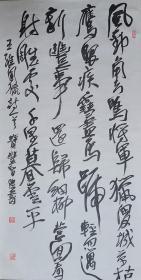 風勁角弓鳴將軍獵渭城草枯
鷹眼疾雪盡馬蹄輕忽過
新豐市還歸細柳營回看
射雕處千里暮雲平
王維觀獵詩一首